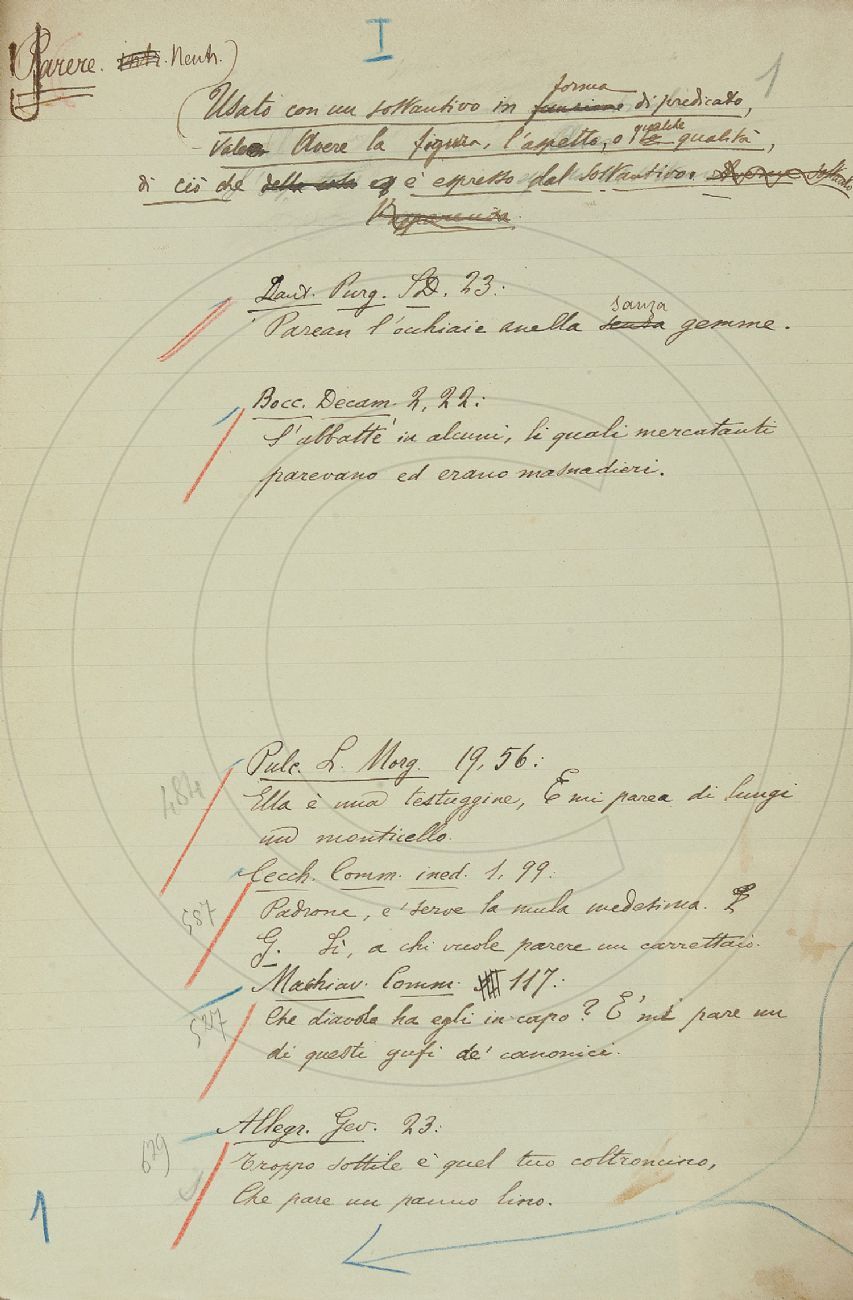 I
1
Parere. intr. Neutr.
forma
Usato con un sostantivo in funzione di predicato,
qualche
vale Avere la figura, l'aspetto, o le qualità,
di ciò che della cosa è espresso dal sostantivo.
L'apparenza
Dant. Purg. 23:
sanza
Parean l'occhiaie anella senza gemme.
Bocc. Decam. 2, 22:
S'abbatté in alcuni, li quali mercatanti
parevano ed erano masnadieri.
Pulc. L. Morg. 19, 56:
484
Ella è una testuggine, E mi parea di lungi
un monticello.
Cecch. Comm. ined. 1, 99:
587
Padrone, e' serve la mula medesima.
G. Sì, a chi vuole parere un carrettaio.
Machiav. Comm. 117:
527
Che diavolo ha egli in capo? E' mi pare un
di questi gufi de' canonici.
Allegr. Gev. 23:
629
Troppo sottile è quel tuo coltroncino,
Che pare un panno lino.
1